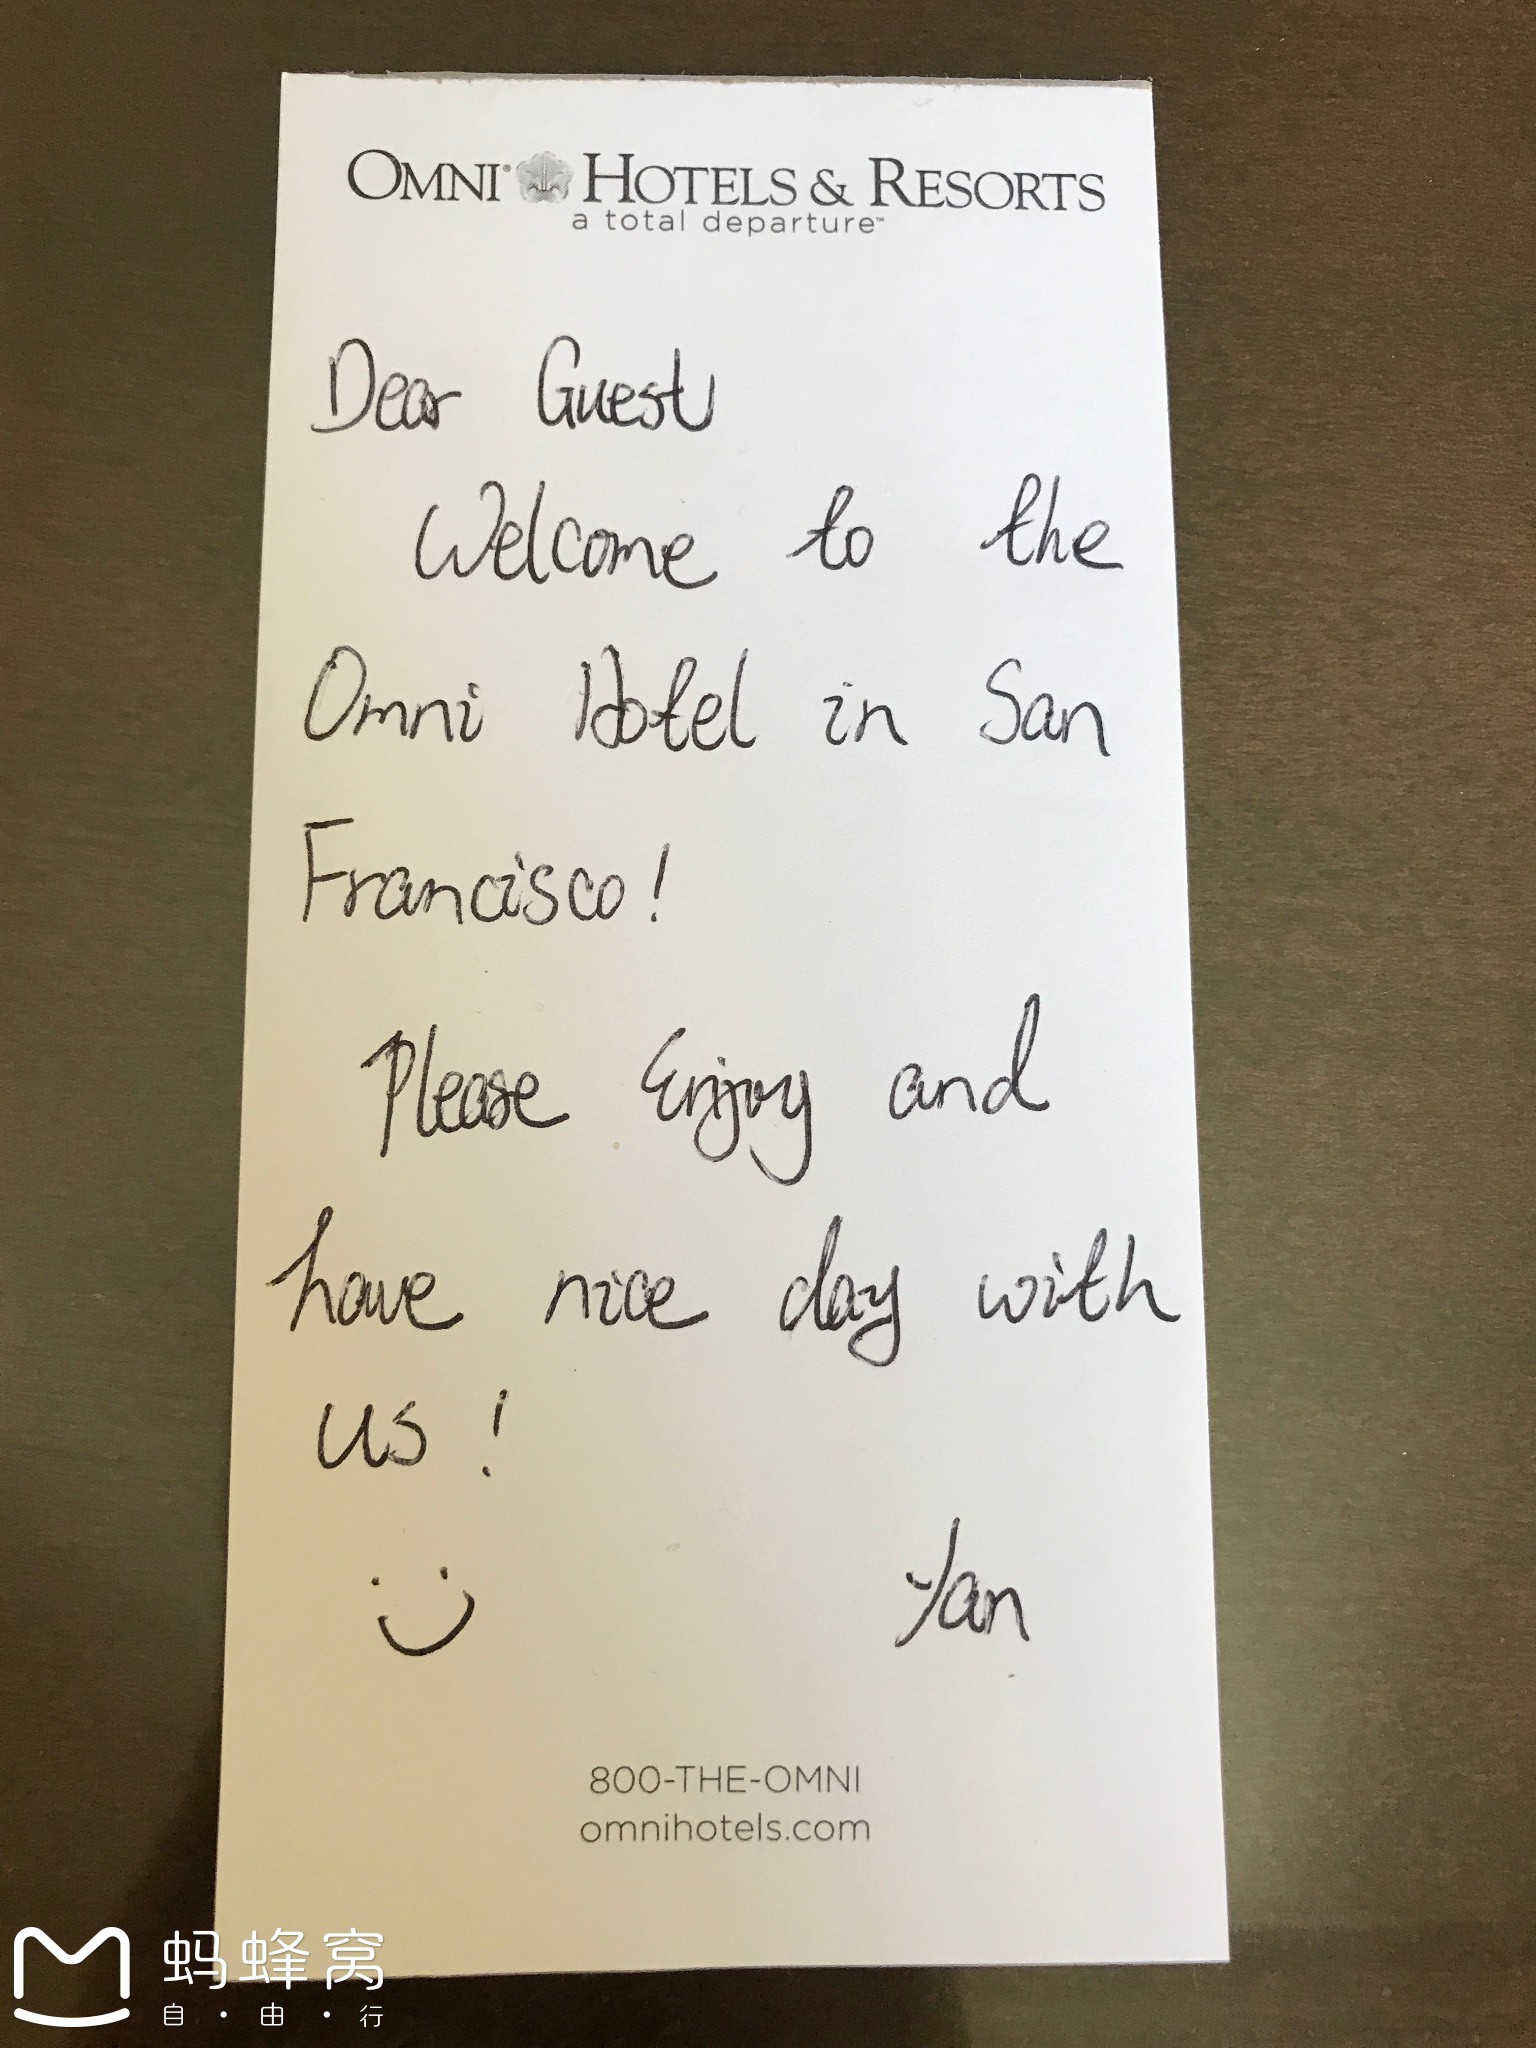 OMNI® HOTELS & RESORTS
a total departure™
Dear Guest
Welcome to the
Omni Hotel in San
Francisco!
Please Enjoy and
have nice day with
us!
Yan
800-THE-OMNI
omnihotels.com
蚂蜂窝
自·由·行